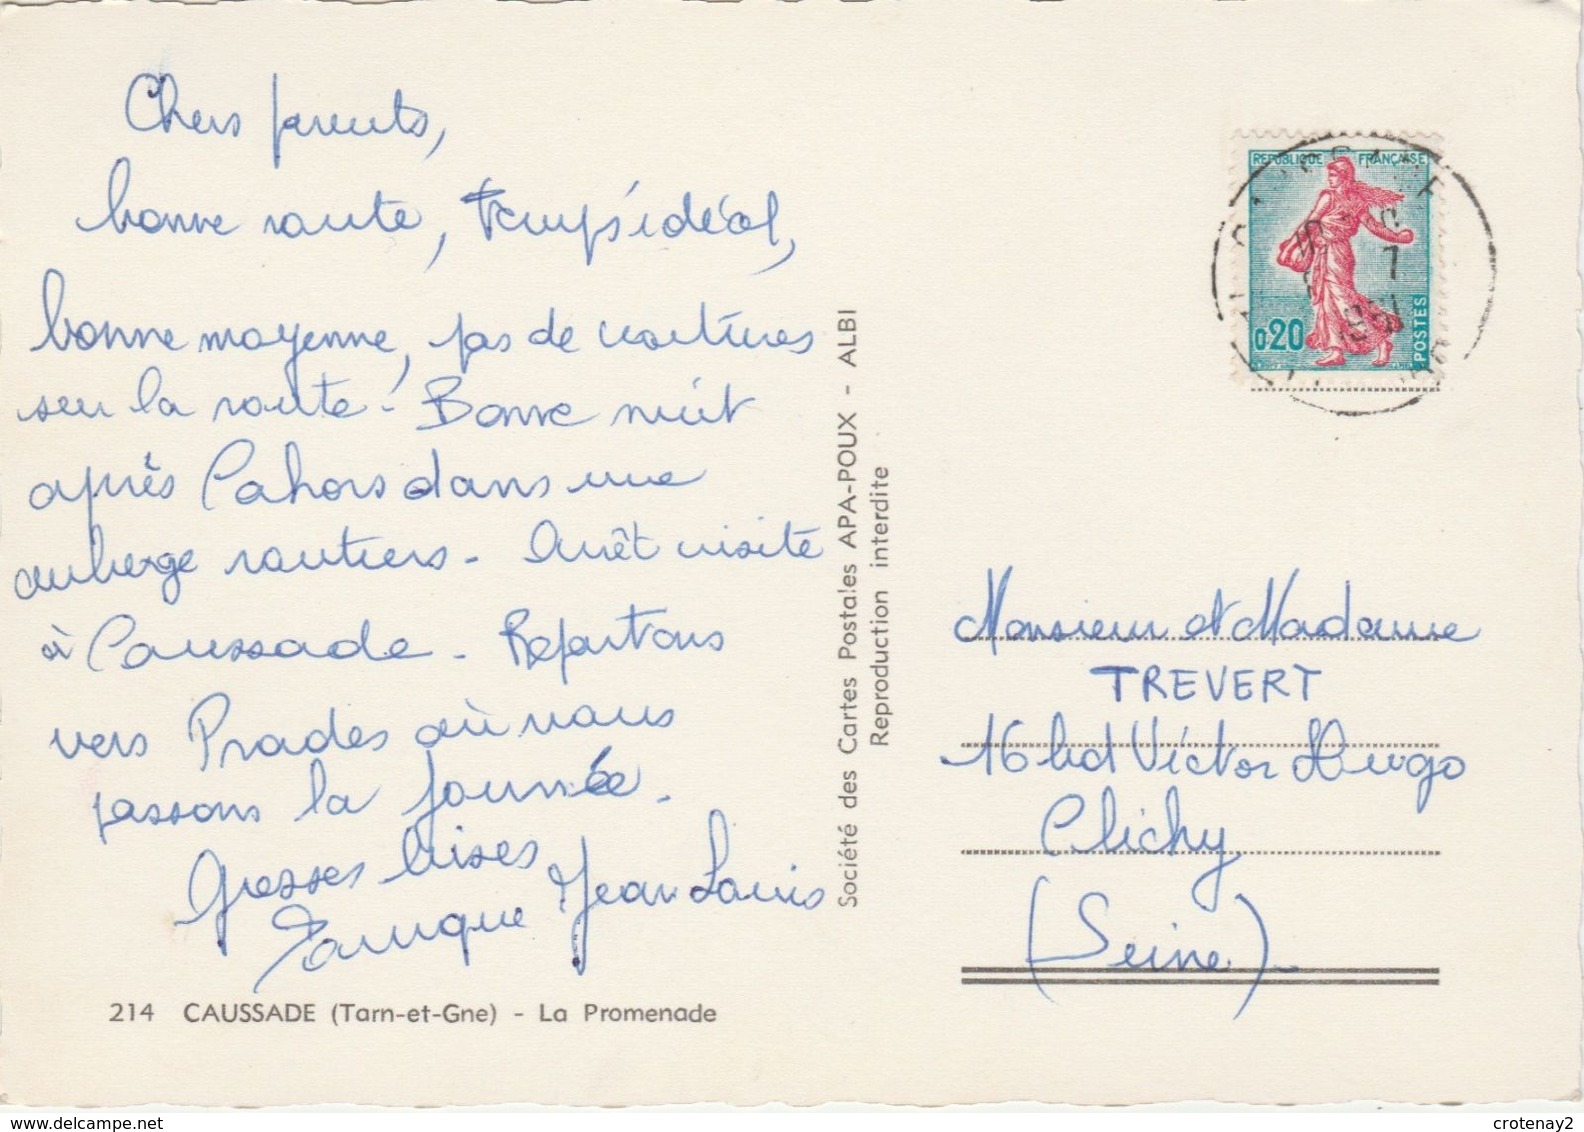 Chers parents,
bonne route, temps idéal,
bonne moyenne, pas de voitures
sur la route. Bonne nuit
après Cahors dans une
auberge routiers. Arrêt visite
à Caussade. Repartons
vers Prades où nous
passons la journée.
Grosses bises
Jean Louis
214 CAUSSADE (Tarn-et-Gne) - La Promenade
Société des Cartes Postales APA-POUX - ALBI
Reproduction interdite
REPUBLIQUE FRANÇAISE
0,20
POSTES
Monsieur et Madame
TREVERT
16 bd Victor Hugo
Clichy
(Seine).
www.delcampe.net
crotenay2